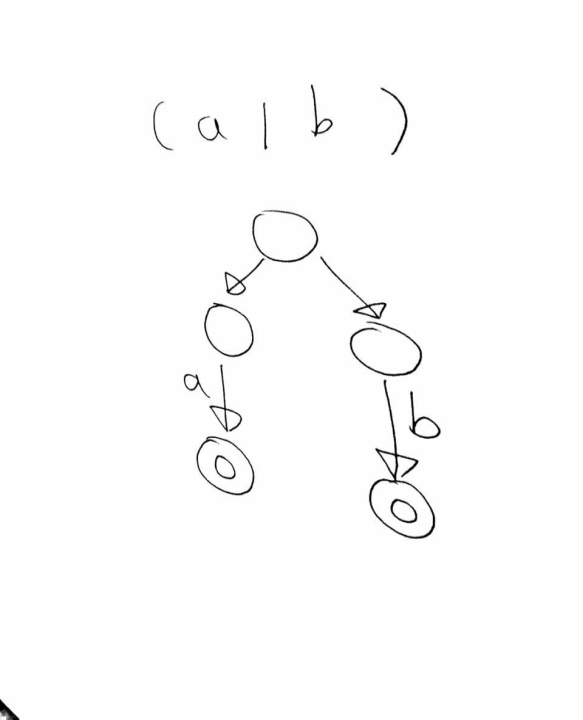 (a|b)
a
b